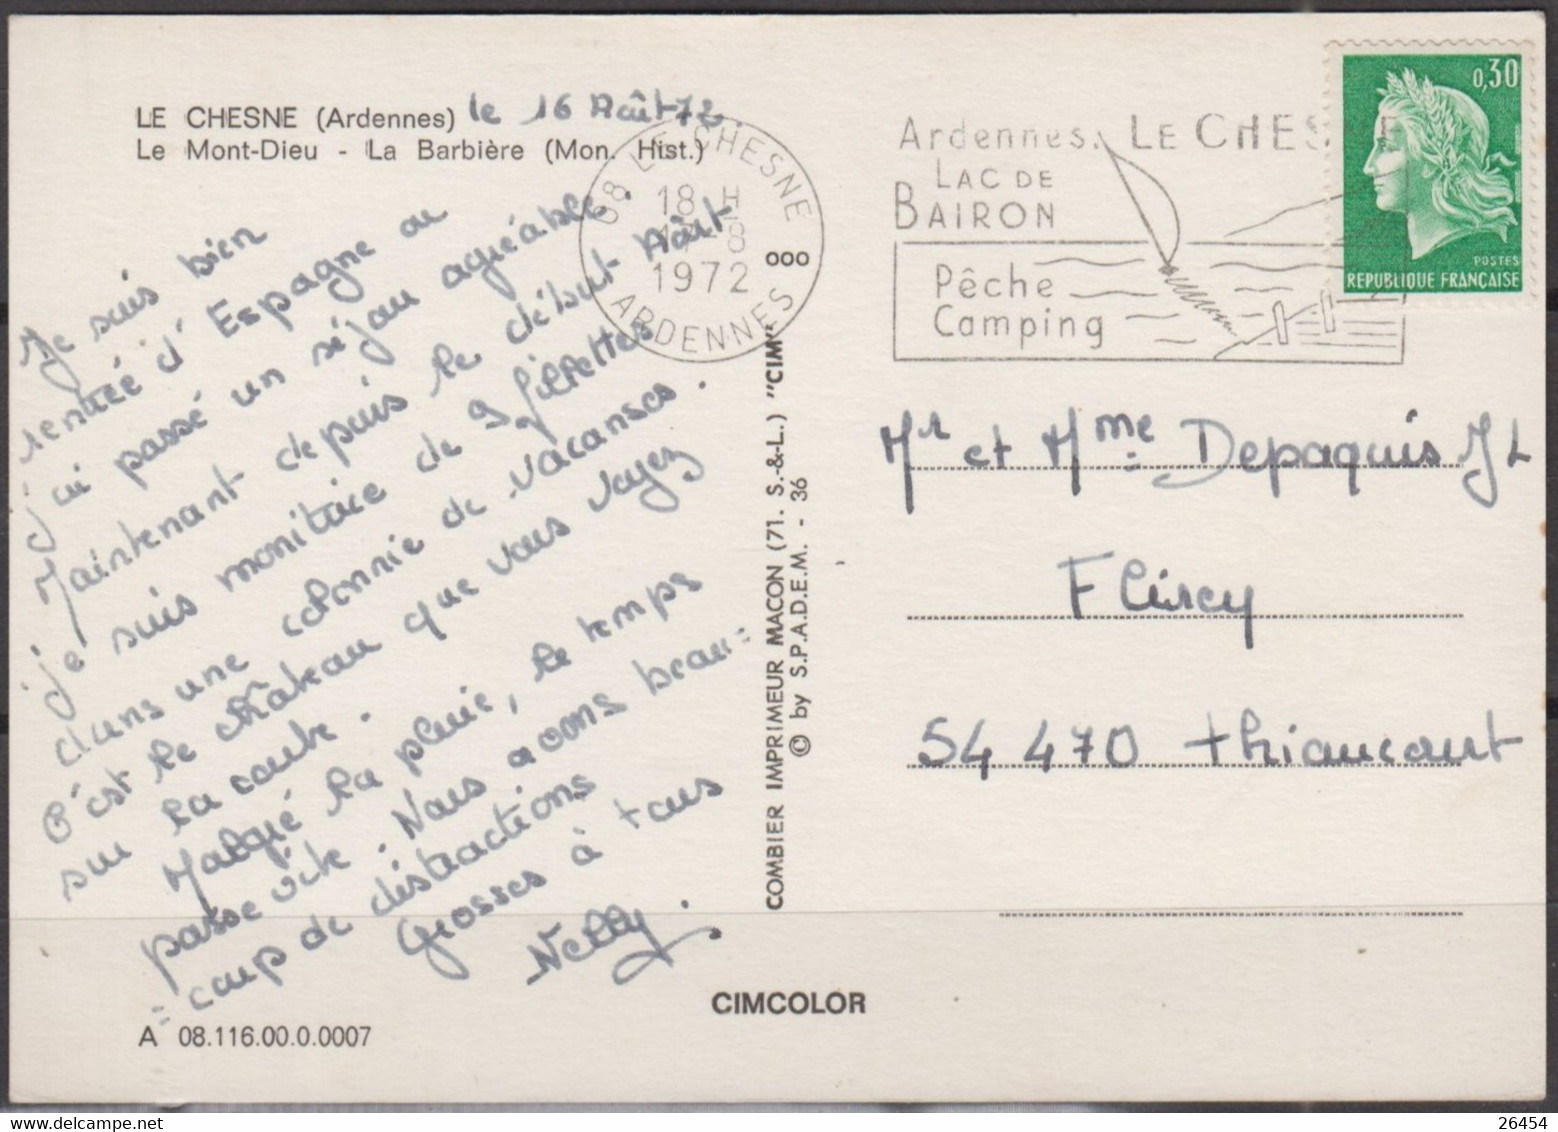 LE CHESNE (Ardennes) le 16 Août 72
Le Mont-Dieu - La Barbière (Mon. Hist.)
Je suis bien
rentrée d'Espagne où
j'ai passé un séjour agréable.
Maintenant depuis le début Août
je suis monitrice de 9 fillettes
dans une colonnie de vacanses.
C'est le château que vous voyez
sur la carte.
Malgré la pluie, le temps
passe vite. Nous avons beau=
=coup de distractions
Grosses à tous
Nelly.
A 08.116.00.0.0007
CIMCOLOR
COMBIER IMPRIMEUR MACON (71. S.-&-L.) "CIM"
© by S.P.A.D.E.M. - 36
08 LE CHESNE
18 H
8
1972
ARDENNES
Ardennes. LE CHESNE
LAC DE
BAIRON
Pêche
Camping
0,30
POSTES
REPUBLIQUE FRANÇAISE
Mr et Mme Depaquis JL
Flirey
54 470 thiaucourt
26454